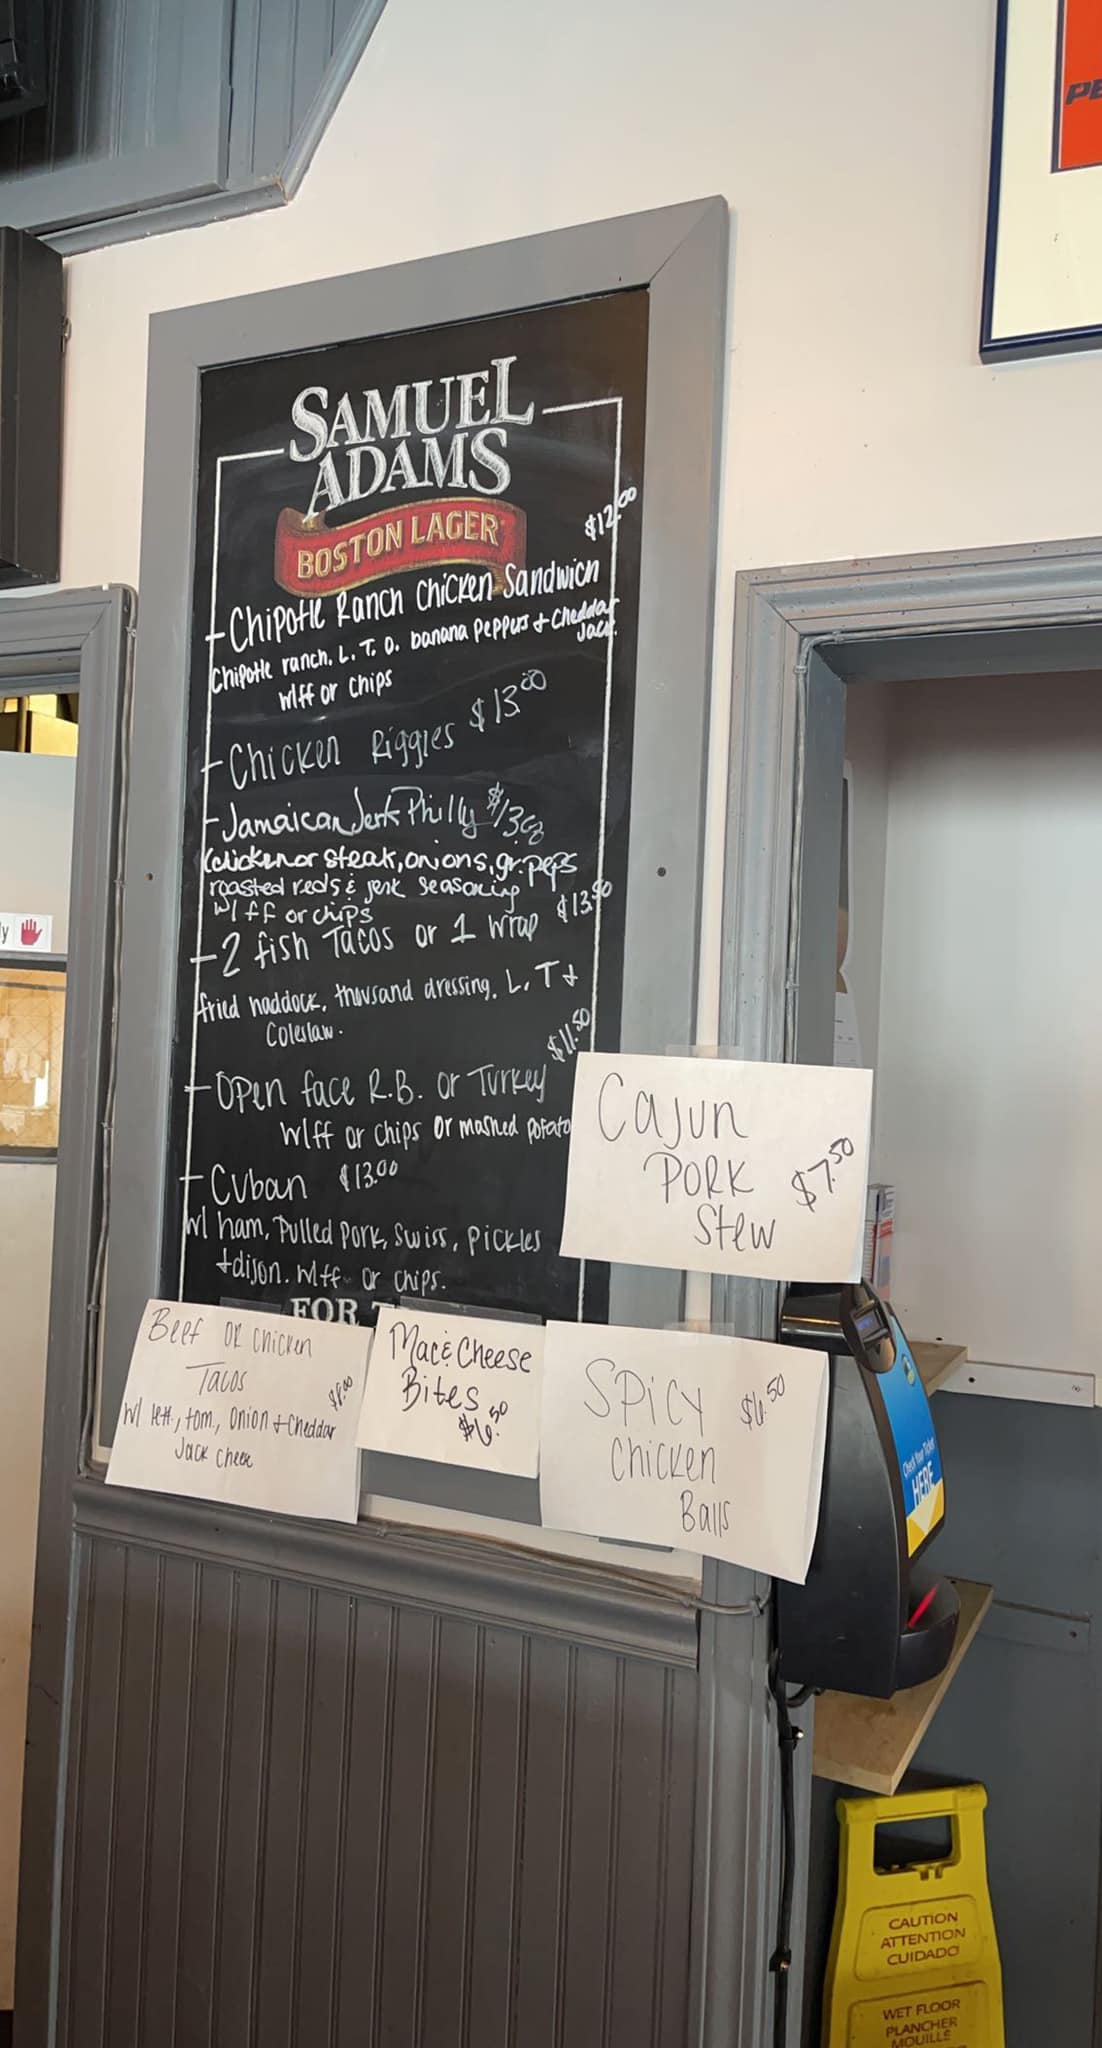 PE
SAMUEL
ADAMS
BOSTON LAGER
$12.00
- Chipotle Ranch Chicken Sandwich
Chipotle ranch. L. T. O. banana Peppers + Cheddar
Jack.
w/ff or chips
- Chicken Riggies $13.00
- Jamaican Jerk Philly
(chicken or steak, onions, gr. peps
roasted reds & jerk seasoning
w/ ff or chips
- 2 fish Tacos or 1 wrap $13.50
fried haddock, thousand dressing, L. T +
Coleslaw.
$11.50
- Open face R.B. or Turkey
w/ff or chips or mashed potato
- Cuban $13.00
w/ ham, Pulled Pork, Swiss, Pickles
+ dijon. w/ff or chips.
FOR T
Cajun
Pork $7.50
Stew
Beef or chicken
Tacos
$8.00
w/ lett., tom., onion + cheddar
Jack cheese
Mac & Cheese
Bites
$6.50
Spicy $6.50
Chicken
Balls
y
Check Your Ticket
HERE
CAUTION
ATTENTION
CUIDADO
WET FLOOR
PLANCHER
MOUILLÉ